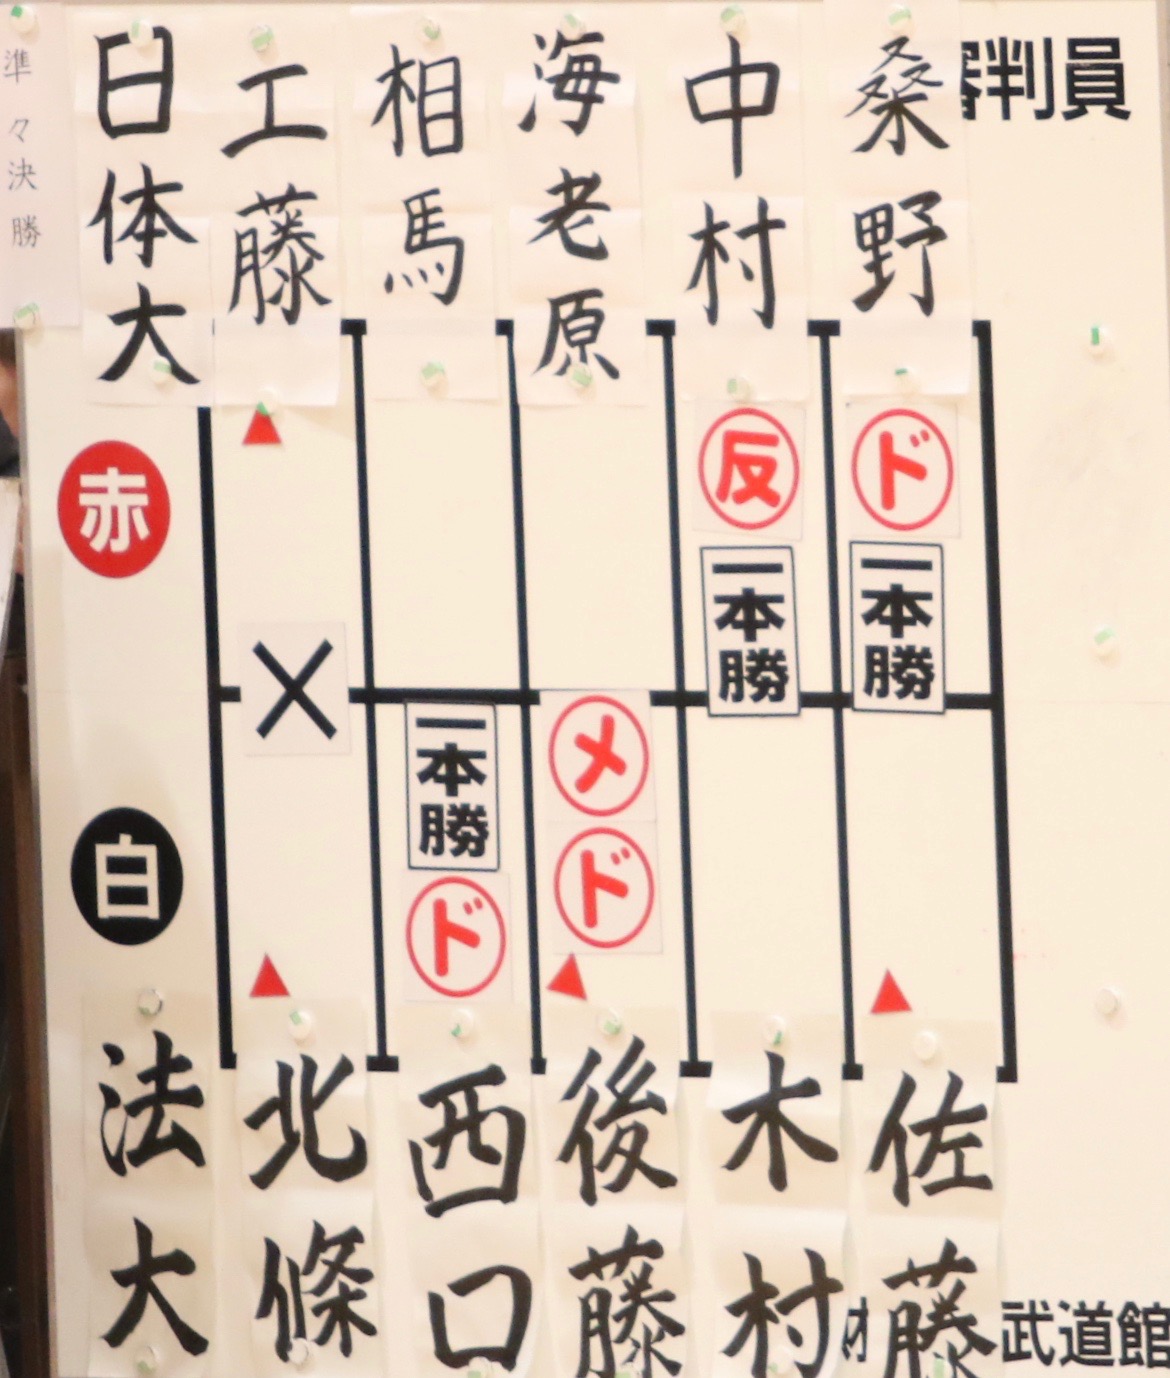 準々決勝
日体大
工藤
相馬
海老原
中村
桑野
審判員
赤
反
ド
一本勝
一本勝
×
一本勝
ド
メ
ド
白
法大
北條
西口
後藤
木村
佐藤
財
武道館